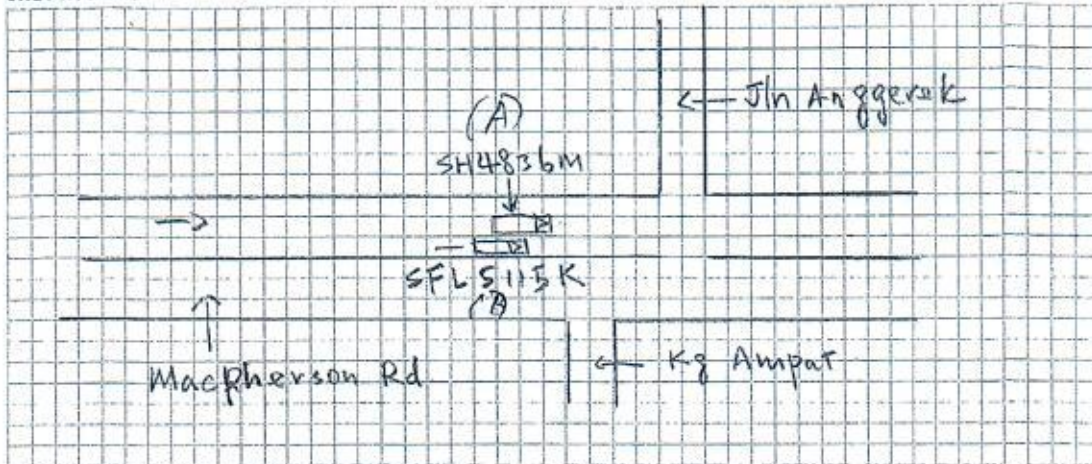 Jln Anggerek
(A)
SH4836M
SFL5115K
(B)
MacPherson Rd
Kg Ampat